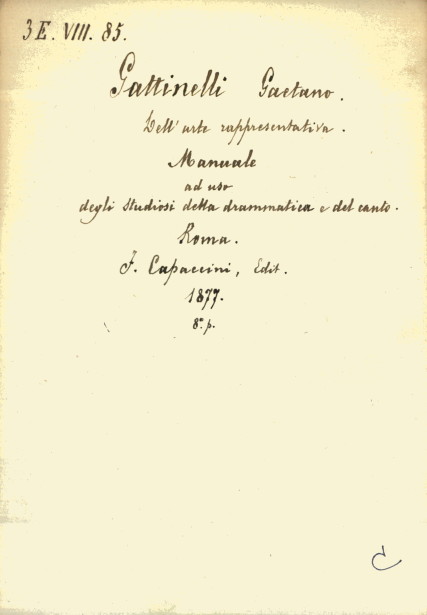 3 E. VIII. 85.
Gattinelli Gaetano.
Dell'arte rappresentativa.
Manuale
ad uso
degli studiosi della drammatica e del canto.
Roma.
F. Capaccini, Edit.
1877.
8.° p.
C